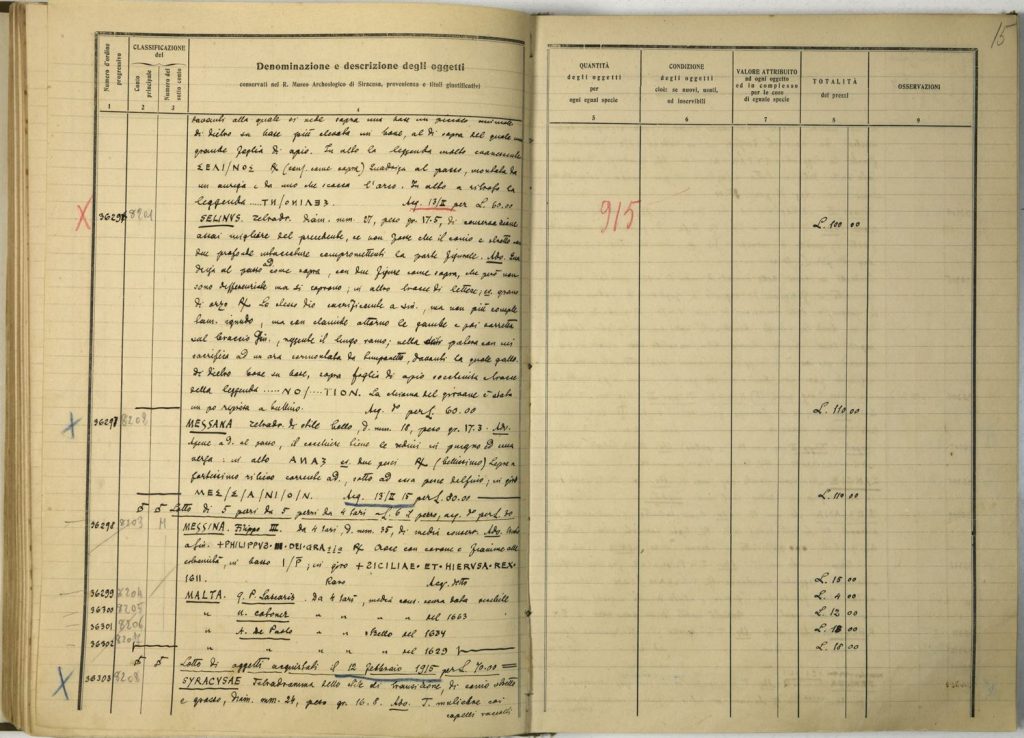 15
Numero d'ordine progressivo
CLASSIFICAZIONE del
Conto principale
Numero del sotto conto
Denominazione e descrizione degli oggetti
conservati nel R. Museo Archeologico di Siracusa, provenienza e titoli giustificativi
1 2 3 4
QUANTITÀ degli oggetti per ogni egual specie
CONDIZIONE degli oggetti cioè: se nuovi, usati, od inservibili
VALORE ATTRIBUITO ad ogni oggetto ed in complesso per le cose di eguale specie
TOTALITÀ dei prezzi
OSSERVAZIONI
5 6 7 8 9
davanti alla quale si vede sopra una base un piccolo
di dietro su base più elevata un bove, al di sopra del quale
grande foglia di apio. In alto la leggenda molto evanescente
ΣΕΛΙ/ΝΟΣ (conf. come sopra) Quadriga al passo, montata da
un auriga e da uno che scocca l'arco. In alto a ritroso la
leggenda Acq. 13/II per L. 60.00
X 8201 SELINVS. Tetradr. diam. mm. 27, peso gr. 17.5, di conservazione 915 L. 100 00
assai migliore del precedente, se non fosse che il conio è stretto
due profonde compromettenti la parte figurale. Adv.
al passo ad come sopra, con due figure come sopra, che però non
sono ma si coprono; in alto tracce di lettere; es. grano
di orzo Lo stesso dio sacrificante a sin., ma non più comple
tam. ignudo, ma con clamide attorno le gambe e poi
sul braccio sin., reggente il lungo ramo; nella palera con cui
sacrifica ad un ara sormontata da, davanti la quale gallo.
di dietro bove su base, sopra foglia di apio tracce
della leggenda .....NO/....TION. La chioma del giovane è stata
un po a bulino. Acq. per L. 60.00 L. 110 00
36297 8202 MESSANA Tetradr. di stile bello, d. mm. 18, peso gr. 17.3. Adv.
Apene a d. al passo, il cocchiere tiene le redini in pugno ed una
verga: in alto es. due pesci (bellissimo) Lepre
fortissimo rilievo corrente a d., sotto ad essa pesce delfino; in giro
ΜΕΣ/Σ/Α/ΝΙ/Ο/Ν. Acq. 13/II 15 per L. 80.00 L. 110 00
Lotto di 5 pezzi da 5 pezzi da 4 tarì a L. 6 il pezzo, acq. per L. 30
36298 8203 M MESSINA. Filippo III. da 4 tarì, d. mm. 35, di media conserv. Adv.
a sin. +PHILIPPVS · III · DEI · GRATIA Croce con corone e fiamme alle
estremità, in basso I/P; in giro + SICILIAE · ET · HIERVSA · REX ·
1611. Raro Acq. detto L. 15 00
36299 8204 MALTA. G. P. Lascaris. da 4 tarì, media cons. L. 4 00
36300 8205 " " " " del 1663 L. 12 00
36301 8206 " A. de Paolo " " Bello del 1634 L. 18 00
36302 8207 " " " " del 1629 L. 15 00
Lotto di oggetti acquistati il 12 febbraio 1915 per L. 70.00
X 36303 8208 SYRACVSAE Tetradramma dello stile di transizione, di conio stretto
e grosso, diam. mm. 24, peso gr. 16.8. Adv. T. muliebre coi
capelli raccolti